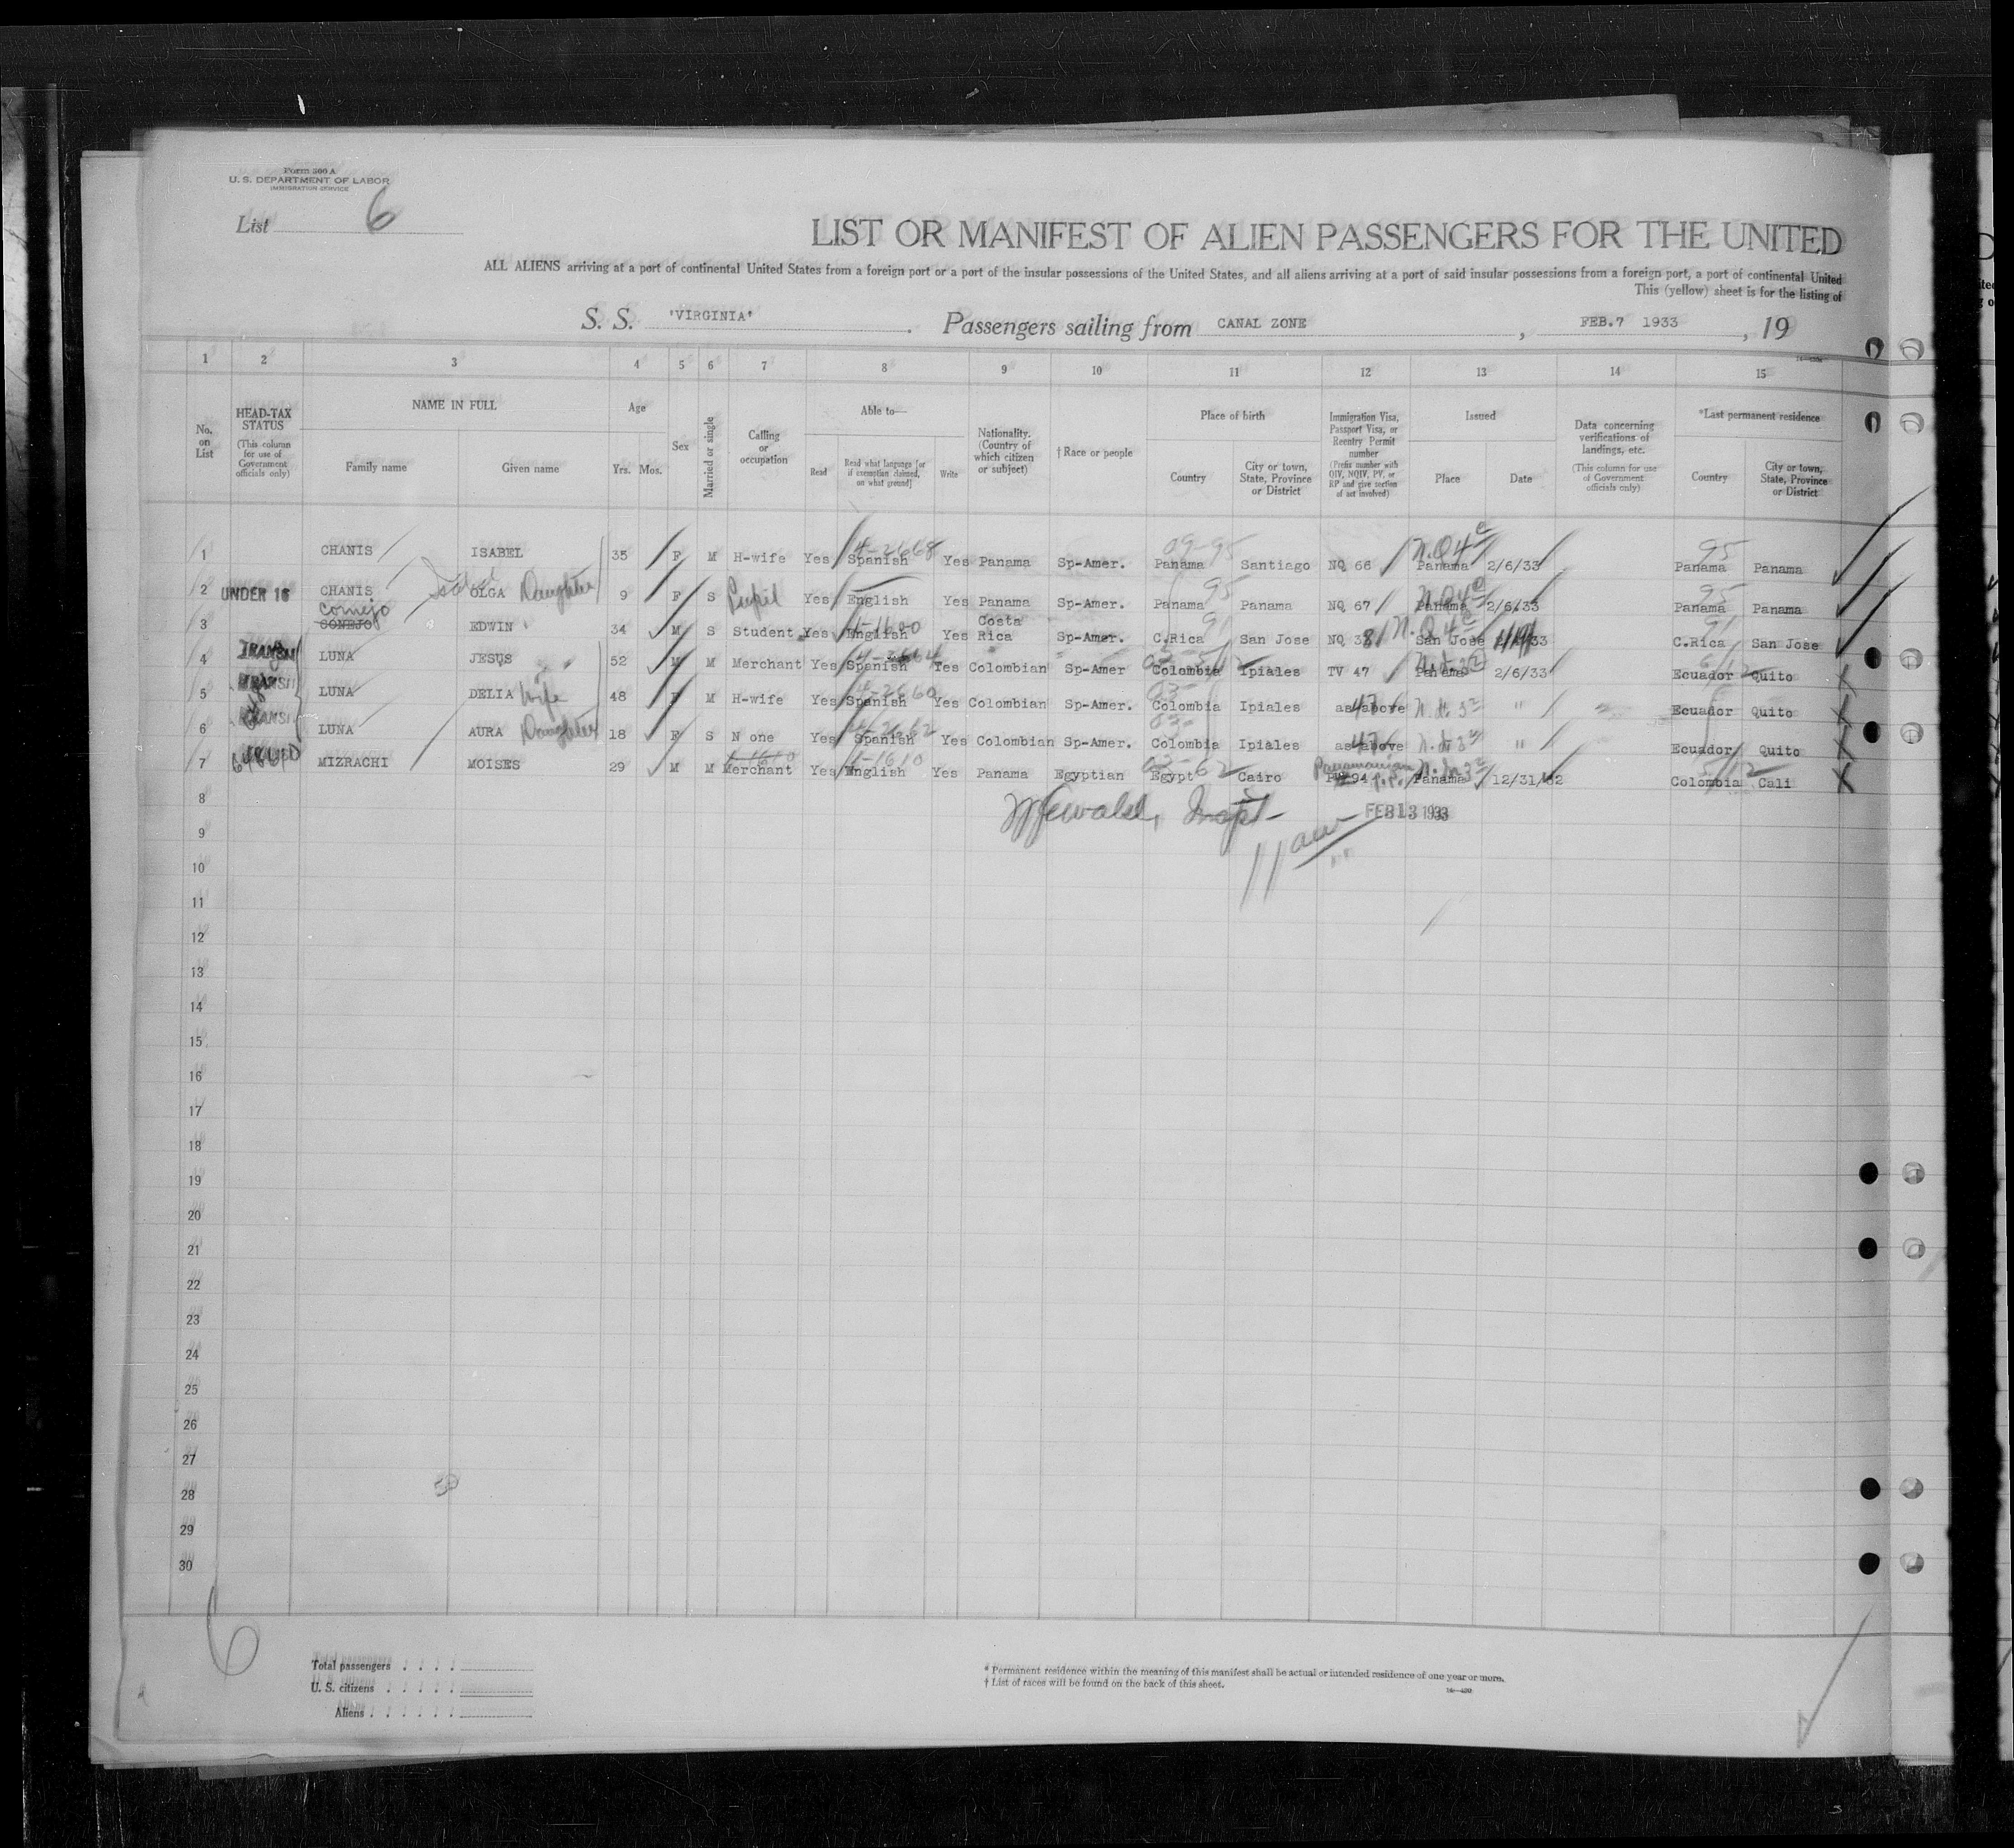 Form 500 A
U. S. DEPARTMENT OF LABOR
IMMIGRATION SERVICE
List 6
LIST OR MANIFEST OF ALIEN PASSENGERS FOR THE UNITED
ALL ALIENS arriving at a port of continental United States from a foreign port or a port of the insular possessions of the United States, and all aliens arriving at a port of said insular possessions from a foreign port, a port of continental United
This (yellow) sheet is for the listing of
S. S. 'VIRGINIA' . Passengers sailing from CANAL ZONE , FEB.7 1933 , 19
1 2 3 4 5 6 7 8 9 10 11 12 13 14 15
No. on List
HEAD-TAX STATUS
(This column for use of Government officials only)
NAME IN FULL
Family name Given name
Age
Yrs. Mos.
Sex
Married or single
Calling or occupation
Able to—
Read Read what language [or if exemption claimed, on what ground] Write
Nationality. (Country of which citizen or subject)
† Race or people
Place of birth
Country City or town, State, Province or District
Immigration Visa, Passport Visa, or Reentry Permit number
(Prefix number with QIV, NQIV, PV, or RP and give section of act involved)
Issued
Place Date
Data concerning verifications of landings, etc.
(This column for use of Government officials only)
*Last permanent residence
Country City or town, State, Province or District
1 CHANIS ISABEL 35 F M H-wife Yes 4-2668 Spanish Yes Panama Sp-Amer. 09-95 Panama Santiago NQ 66 N.Q 4e Panama 2/6/33 95 Panama Panama
2 UNDER 16 CHANIS OLGA Daughter 9 F S Pupil Yes English Yes Panama Sp-Amer. 95 Panama Panama NQ 67 Panama 2/6/33 95 Panama Panama
3 Cornejo CONEJO EDWIN 34 M S Student Yes 1-1600 English Yes Costa Rica Sp-Amer. 91 C.Rica San Jose NQ 38 San Jose 33 91 C.Rica San Jose
4 TRANSIT LUNA JESUS 52 M M Merchant Yes Spanish Yes Colombian Sp-Amer Colombia Ipiales TV 47 Panama 2/6/33 Ecuador Quito
5 TRANSIT LUNA DELIA Wife 48 F M H-wife Yes 4-2660 Spanish Yes Colombian Sp-Amer. 03- Colombia Ipiales as above 47 " Ecuador Quito
6 TRANSIT LUNA AURA Daughter 18 F S N one Yes 4-2662 Spanish Yes Colombian Sp-Amer. 03- Colombia Ipiales as above 47 " Ecuador Quito
7 MIZRACHI MOISES 29 M M Merchant Yes 1-1610 English Yes Panama Egyptian 03-62 Egypt Cairo Panamanian 94 Panama 12/31/32 Colombia Cali
FEB 13 1933
8
9
10
11
12
13
14
15
16
17
18
19
20
21
22
23
24
25
26
27
28
29
30
6
Total passengers
U. S. citizens
Aliens
* Permanent residence within the meaning of this manifest shall be actual or intended residence of one year or more.
† List of races will be found on the back of this sheet.